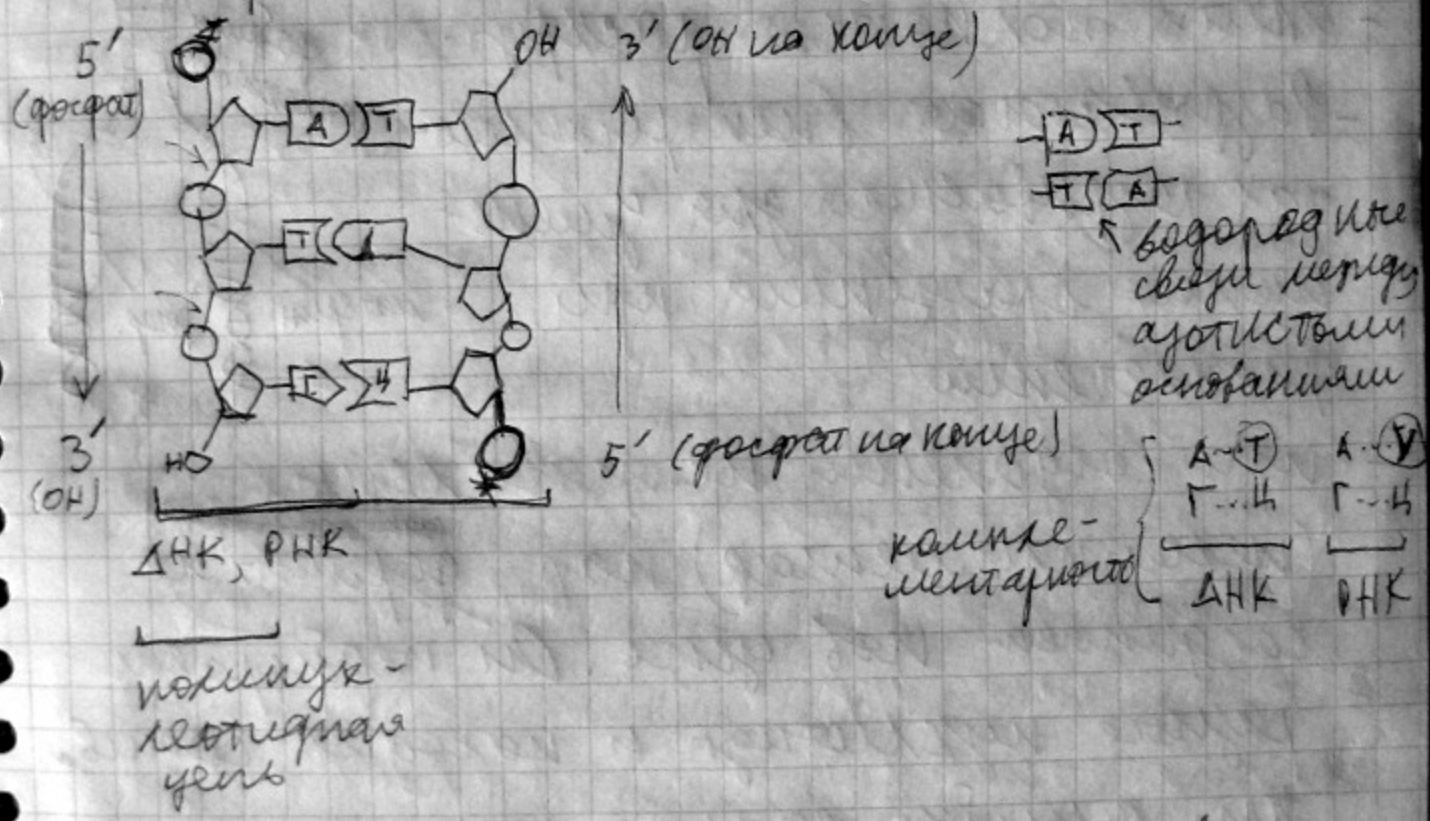 5′
(фосфат)
OH
3′ (OH на конце)
А Т
Т А
Г Ц
3′
(OH)
HO
5′ (фосфат на конце)
ДНК, РНК
полинук-
леотидная
цепь
А Т
Т А
водородные
связи между
азотистыми
основаниями
компле-
ментарность
А...Т А...У
Г...Ц Г...Ц
ДНК РНК